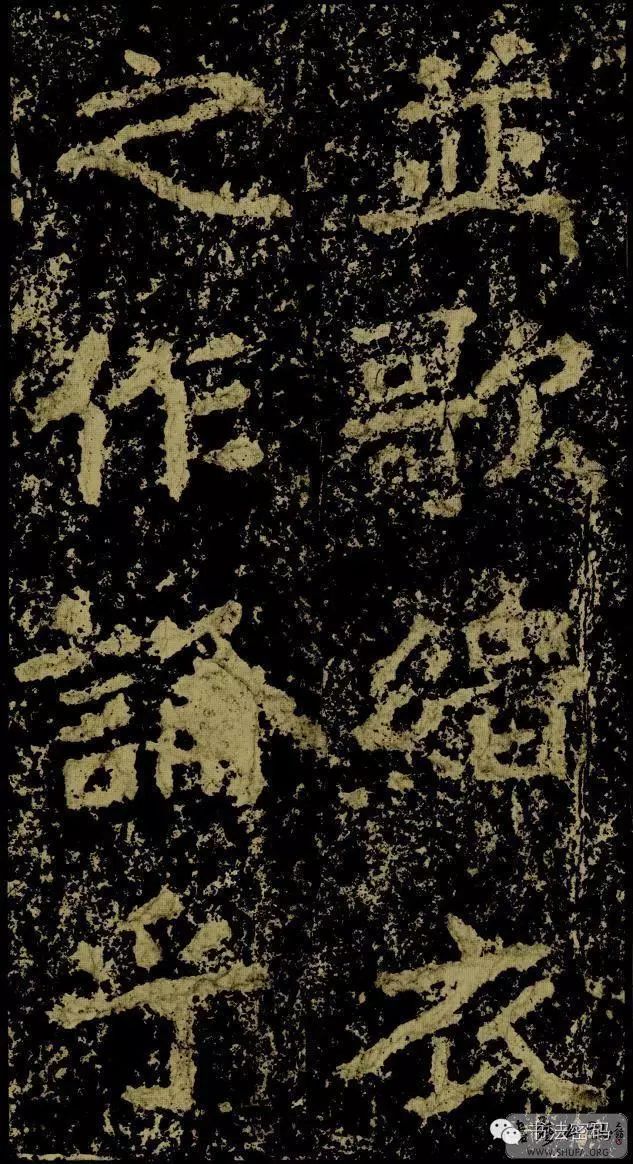 並歌緇衣
之作論乎
书法密码
WWW.SHUFA.ORG